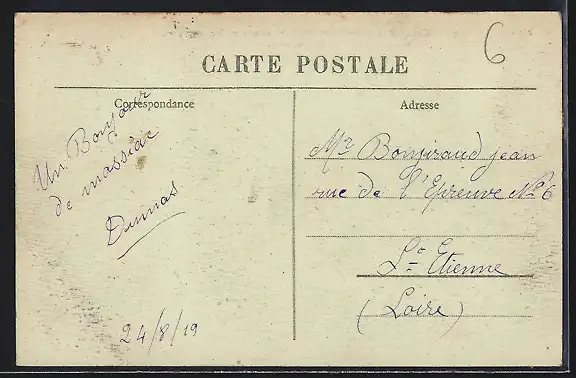 6
CARTE POSTALE
Correspondance
Adresse
Un Bonjour
de massiac
Dumas
24/8/19
Mr Bonjiraud jean
rue de l'Epreuve No 6
St Etienne
(Loire)